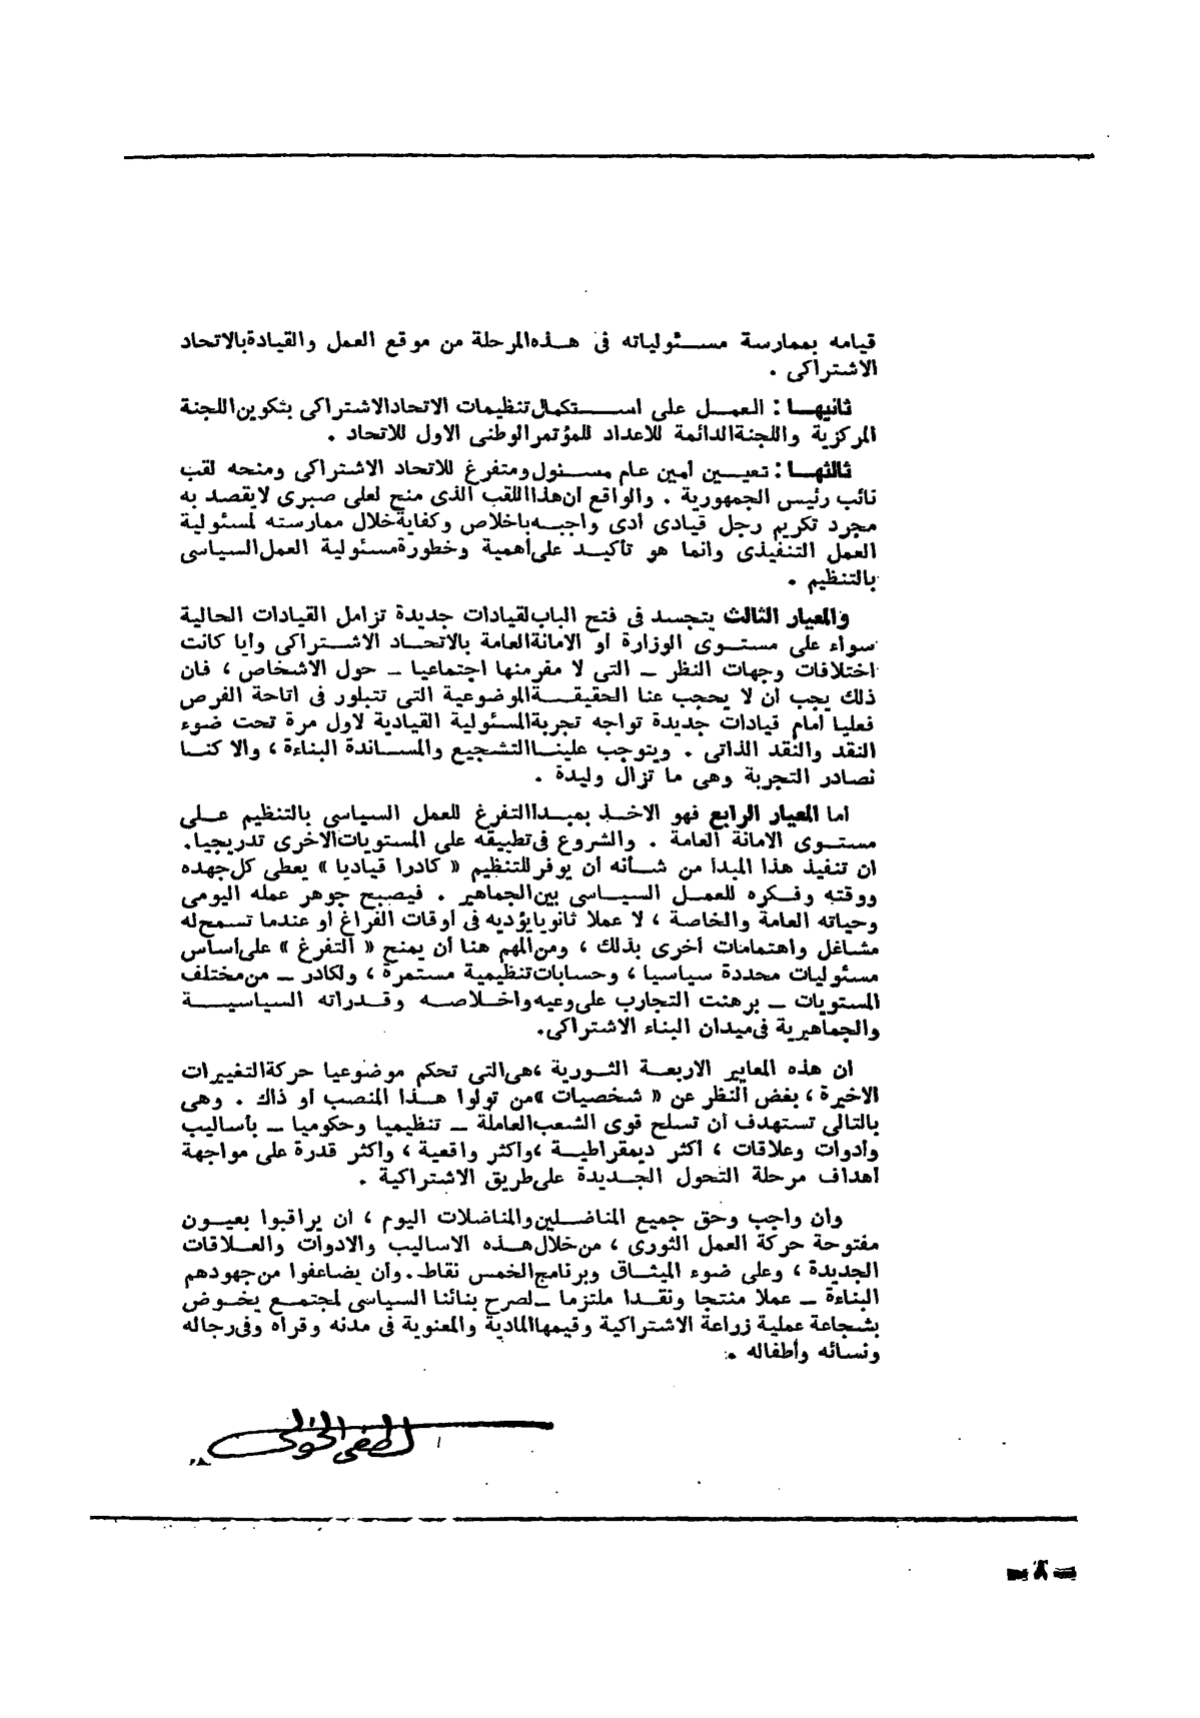 قيامه بممارسة مسئولياته فى هذه المرحلة من موقع العمل والقيادة بالاتحاد
الاشتراكى .
ثانيها : العمل على استكمال تنظيمات الاتحاد الاشتراكى بتكوين اللجنة
المركزية واللجنة الدائمة للاعداد للمؤتمر الوطنى الاول للاتحاد .
ثالثها : تعيين أمين عام مسئول ومتفرغ للاتحاد الاشتراكى ومنحه لقب
نائب رئيس الجمهورية . والواقع أن هذا اللقب الذى منح لعلى صبرى لا يقصد به
مجرد تكريم رجل قيادى أدى واجبه باخلاص وكفاية خلال ممارسته لمسئولية
العمل التنفيذى وانما هو تأكيد على أهمية وخطورة مسئولية العمل السياسى
بالتنظيم .
والمعيار الثالث يتجسد فى فتح الباب لقيادات جديدة تزامل القيادات الحالية
سواء على مستوى الوزارة أو الامانة العامة بالاتحاد الاشتراكى وأيا كانت
اختلافات وجهات النظر ــ التى لا مفر منها اجتماعيا ــ حول الاشخاص ، فان
ذلك يجب أن لا يحجب عنا الحقيقة الموضوعية التى تتبلور فى اتاحة الفرص
فعليا أمام قيادات جديدة تواجه تجربة المسئولية القيادية لاول مرة تحت ضوء
النقد والنقد الذاتى . ويتوجب علينا التشجيع والمساندة البناءة ، والا كنا
نصادر التجربة وهى ما تزال وليدة .
اما المعيار الرابع فهو الاخذ بمبدا التفرغ للعمل السياسى بالتنظيم على
مستوى الامانة العامة . والشروع فى تطبيقه على المستويات الاخرى تدريجيا.
ان تنفيذ هذا المبدا من شأنه أن يوفر للتنظيم « كادرا قياديا » يعطى كل جهده
ووقته وفكره للعمل السياسى بين الجماهير . فيصبح جوهر عمله اليومى
وحياته العامة والخاصة ، لا عملا ثانويا يؤديه فى أوقات الفراغ أو عندما تسمح له
مشاغل واهتمامات أخرى بذلك ، ومن المهم هنا أن يمنح « التفرغ » على أساس
مسئوليات محددة سياسيا ، وحسابات تنظيمية مستمرة ، ولكادر ــ من مختلف
المستويات ــ برهنت التجارب على وعيه واخلاصه وقدراته السياسية
والجماهيرية فى ميدان البناء الاشتراكى.
ان هذه المعايير الاربعة الثورية ، هى التى تحكم موضوعيا حركة التغييرات
الاخيرة ، بغض النظر عن « شخصيات » من تولوا هذا المنصب أو ذاك . وهى
بالتالى تستهدف أن تسلح قوى الشعب العاملة ــ تنظيميا وحكوميا ــ بأساليب
وأدوات وعلاقات ، أكثر ديمقراطية ، وأكثر واقعية ، وأكثر قدرة على مواجهة
أهداف مرحلة التحول الجديدة على طريق الاشتراكية .
وأن واجب وحق جميع المناضلين والمناضلات اليوم ، أن يراقبوا بعيون
مفتوحة حركة العمل الثورى ، من خلال هذه الاساليب والادوات والعلاقات
الجديدة ، وعلى ضوء الميثاق وبرنامج الخمس نقاط. وأن يضاعفوا من جهودهم
البناءة ــ عملا منتجا ونقدا ملتزما ــ لصرح بنائنا السياسى لمجتمع يخوض
بشجاعة عملية زراعة الاشتراكية وقيمها المادية والمعنوية فى مدنه وقراه وفى رجاله
ونسائه وأطفاله .
لطفى الخولى
ــ ٨ ــ